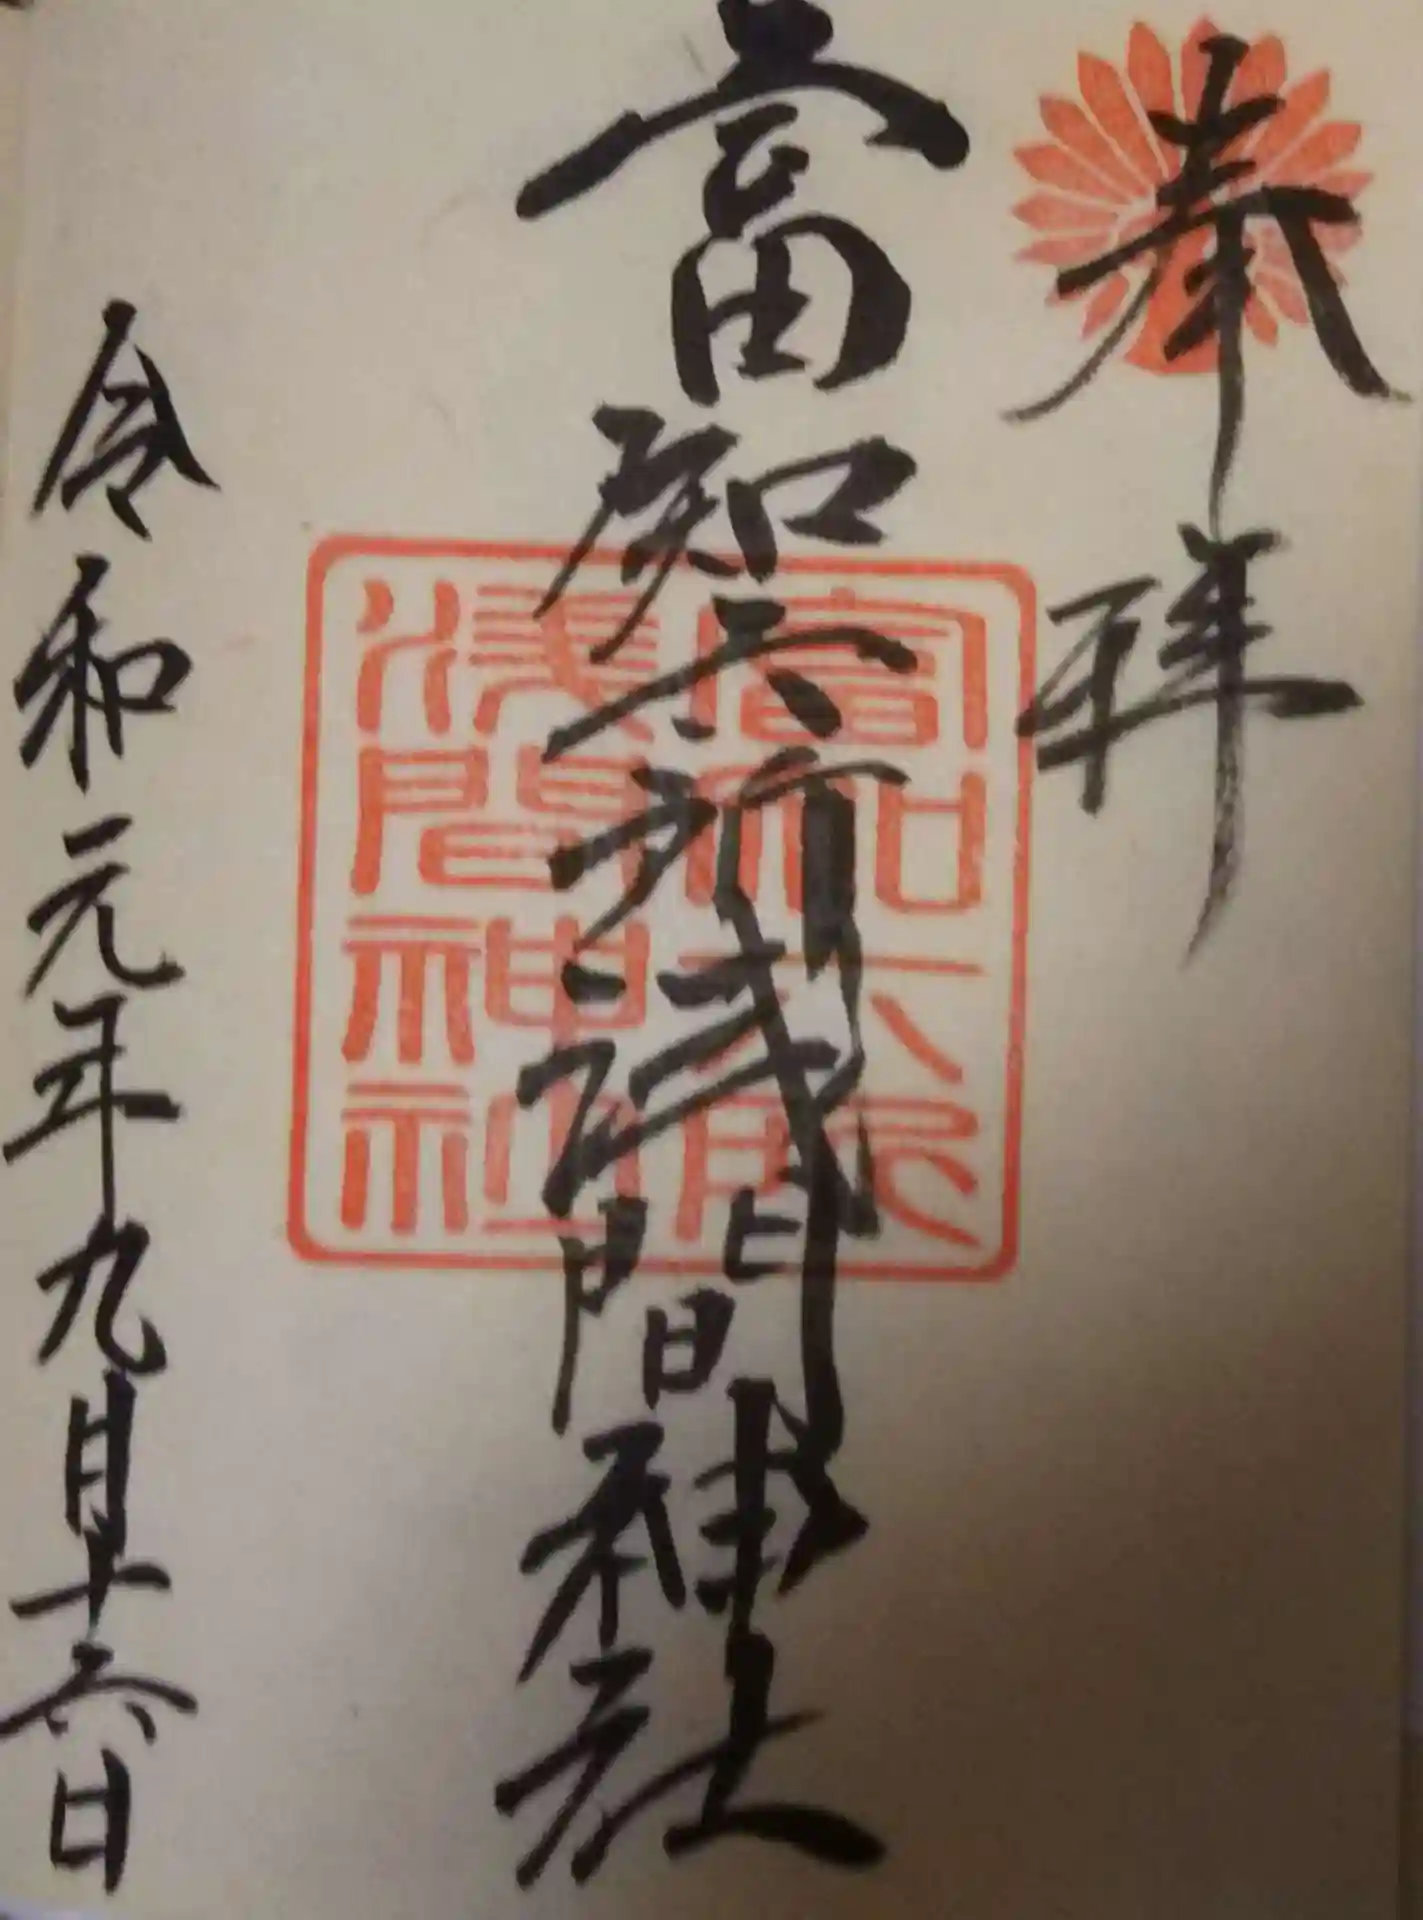 奉拝
富知六所浅間神社
富知六所
浅間神社
令和元年九月十六日